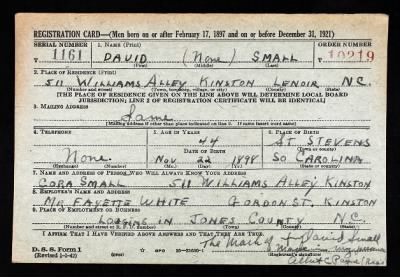 REGISTRATION CARD—(Men born on or after February 17, 1897 and on or before December 31, 1921)
SERIAL NUMBER 1. NAME (Print) ORDER NUMBER
T 1161 DAVID (None) SMALL T 10219
(First) (Middle) (Last)
2. PLACE OF RESIDENCE (Print)
511 WILLIAMS ALLEY KINSTON LENOIR N.C.
(Number and street) (Town, township, village, or city) (County) (State)
[THE PLACE OF RESIDENCE GIVEN ON THE LINE ABOVE WILL DETERMINE LOCAL BOARD
JURISDICTION; LINE 2 OF REGISTRATION CERTIFICATE WILL BE IDENTICAL]
3. MAILING ADDRESS
Same
[Mailing address if other than place indicated on line 2. If same insert word same]
4. TELEPHONE 5. AGE IN YEARS 6. PLACE OF BIRTH
44 ST STEVENS
DATE OF BIRTH (Town or county)
None Nov 22 1898 SO CAROLINA
(Exchange) (Number) (Mo.) (Day) (Yr.) (State or country)
7. NAME AND ADDRESS OF PERSON WHO WILL ALWAYS KNOW YOUR ADDRESS
CORA SMALL 511 WILLIAMS ALLEY KINSTON
8. EMPLOYER'S NAME AND ADDRESS
MR FAYETTE WHITE GORDON ST. KINSTON
9. PLACE OF EMPLOYMENT OR BUSINESS
LOGGING IN JONES COUNTY N.C.
(Number and street or R. F. D. number) (Town) (County) (State)
I AFFIRM THAT I HAVE VERIFIED ABOVE ANSWERS AND THAT THEY ARE TRUE.
The Mark of David Small
D. S. S. Form 1
(Revised 1-1-42) GPO